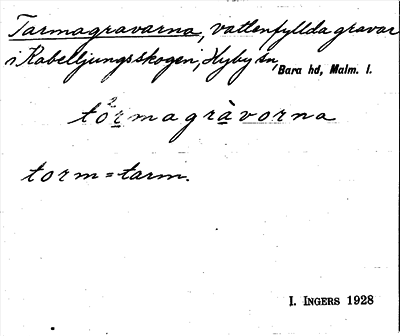 Tarmagravarna, vattenfyllda gravar
i Rabelljungsskogen, Hyby sn, Bara hd, Malm. l.
tòrmagràvorna
torm = tarm.
I. INGERS 1928